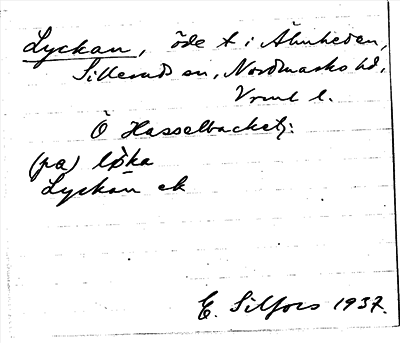 Lyckan, öde t i Älmheden,
Sillerud sn, Nordmarks hd,
Vrml l.
Ö Hasselbacketj:
(pa) lø̀ka
Lyckan ek
E. Silfors 1937.